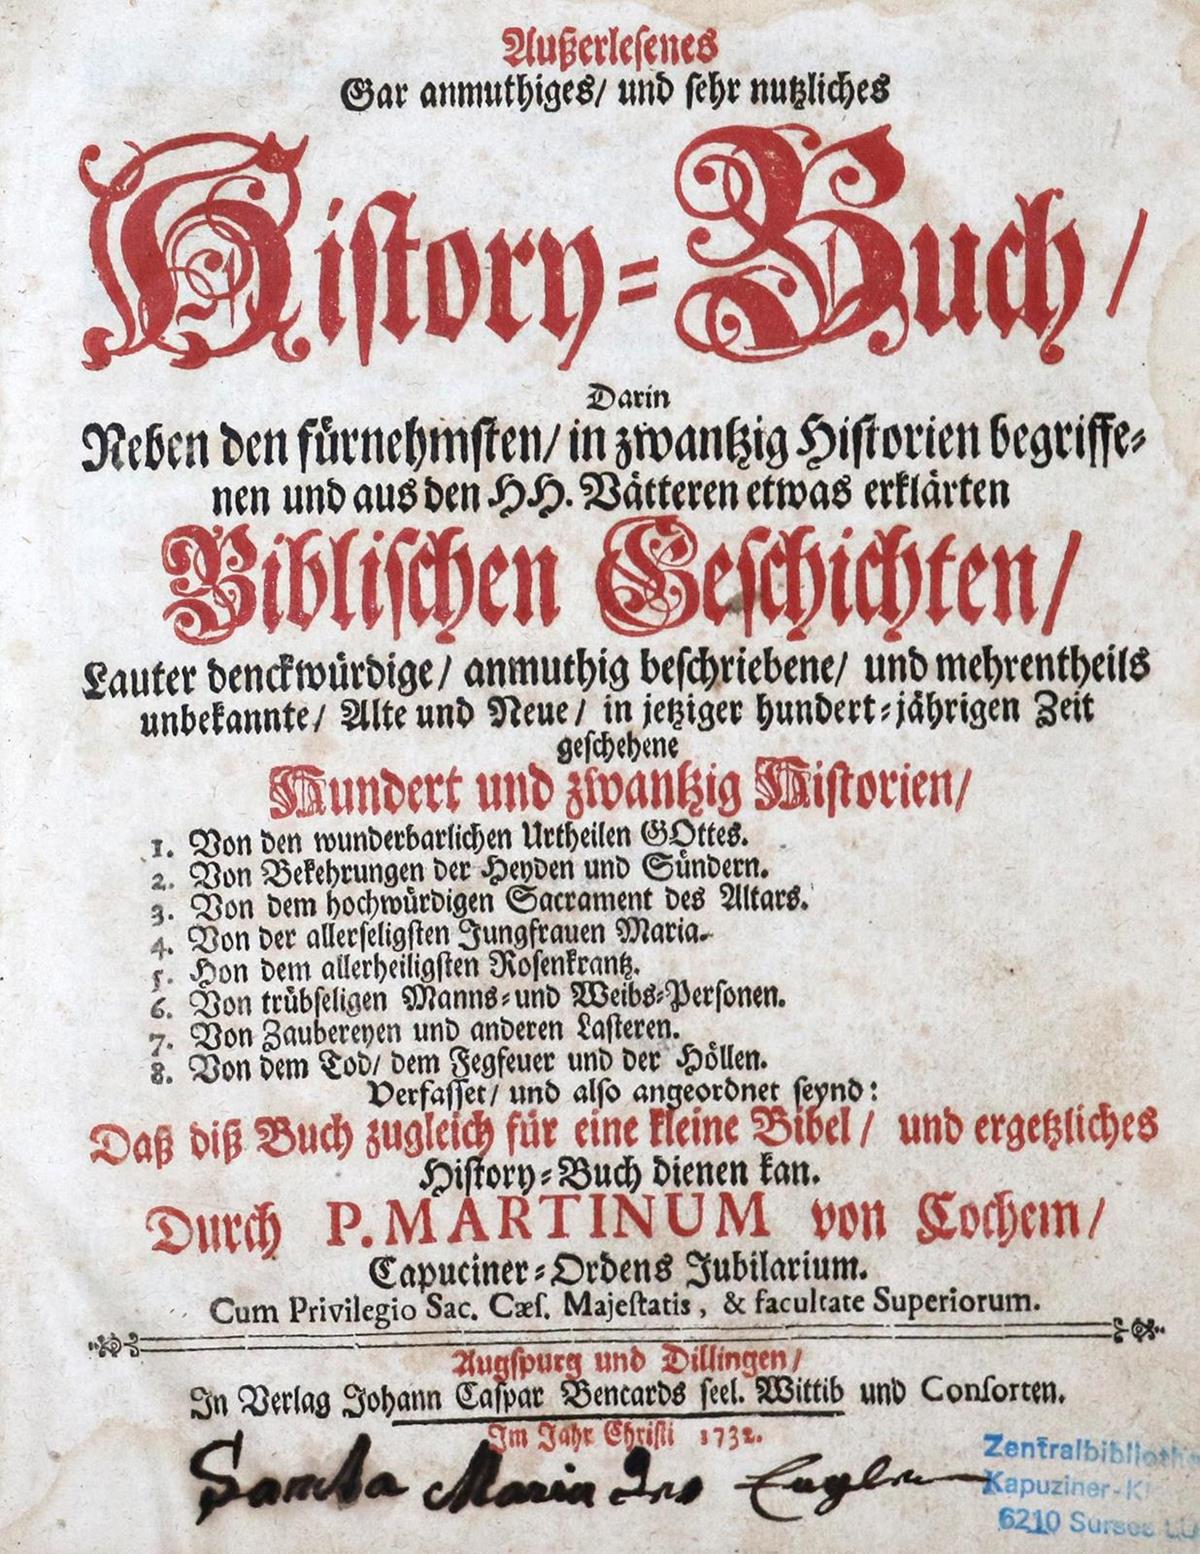 Außerlesenes
Gar anmuthiges/ und sehr nutzliches
History=Buch/
Darin
Neben den fürnehmsten/ in zwantzig Historien begriffe=
nen und aus den HH. Vätteren etwas erklärten
Biblischen Geschichten/
Lauter denckwürdige/ anmuthig beschriebene/ und mehrentheils
unbekannte/ Alte und Neue/ in jetziger hundert=jährigen Zeit
geschehene
Hundert und zwantzig Historien/
1. Von den wunderbarlichen Urtheilen GOttes.
2. Von Bekehrungen der Heyden und Sündern.
3. Von dem hochwürdigen Sacrament des Altars.
4. Von der allerseligsten Jungfrauen Maria.
5. Hon dem allerheiligsten Rosenkrantz.
6. Von trübseligen Manns=und Weibs=Personen.
7. Von Zaubereyen und anderen Lasteren.
8. Von dem Tod/ dem Fegfeuer und der Höllen.
Verfasset/ und also angeordnet seynd:
Daß diß Buch zugleich für eine kleine Bibel/ und ergetzliches
History=Buch dienen kan.
Durch P. MARTINUM von Cochem/
Capuciner=Ordens Jubilarium.
Cum Privilegio Sac. Cæs. Majestatis, & facultate Superiorum.
Augspurg und Dillingen/
In Verlag Johann Caspar Bencards seel. Wittib und Consorten.
Im Jahr Christi 1732.
Sancta Maria
Zentralbibliothe
Kapuziner-Kl
6210 Sursee LU